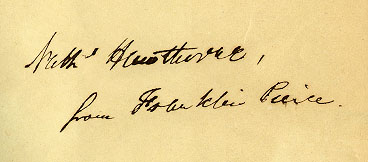 Nathl Hawthorne,
from Franklin Pierce.